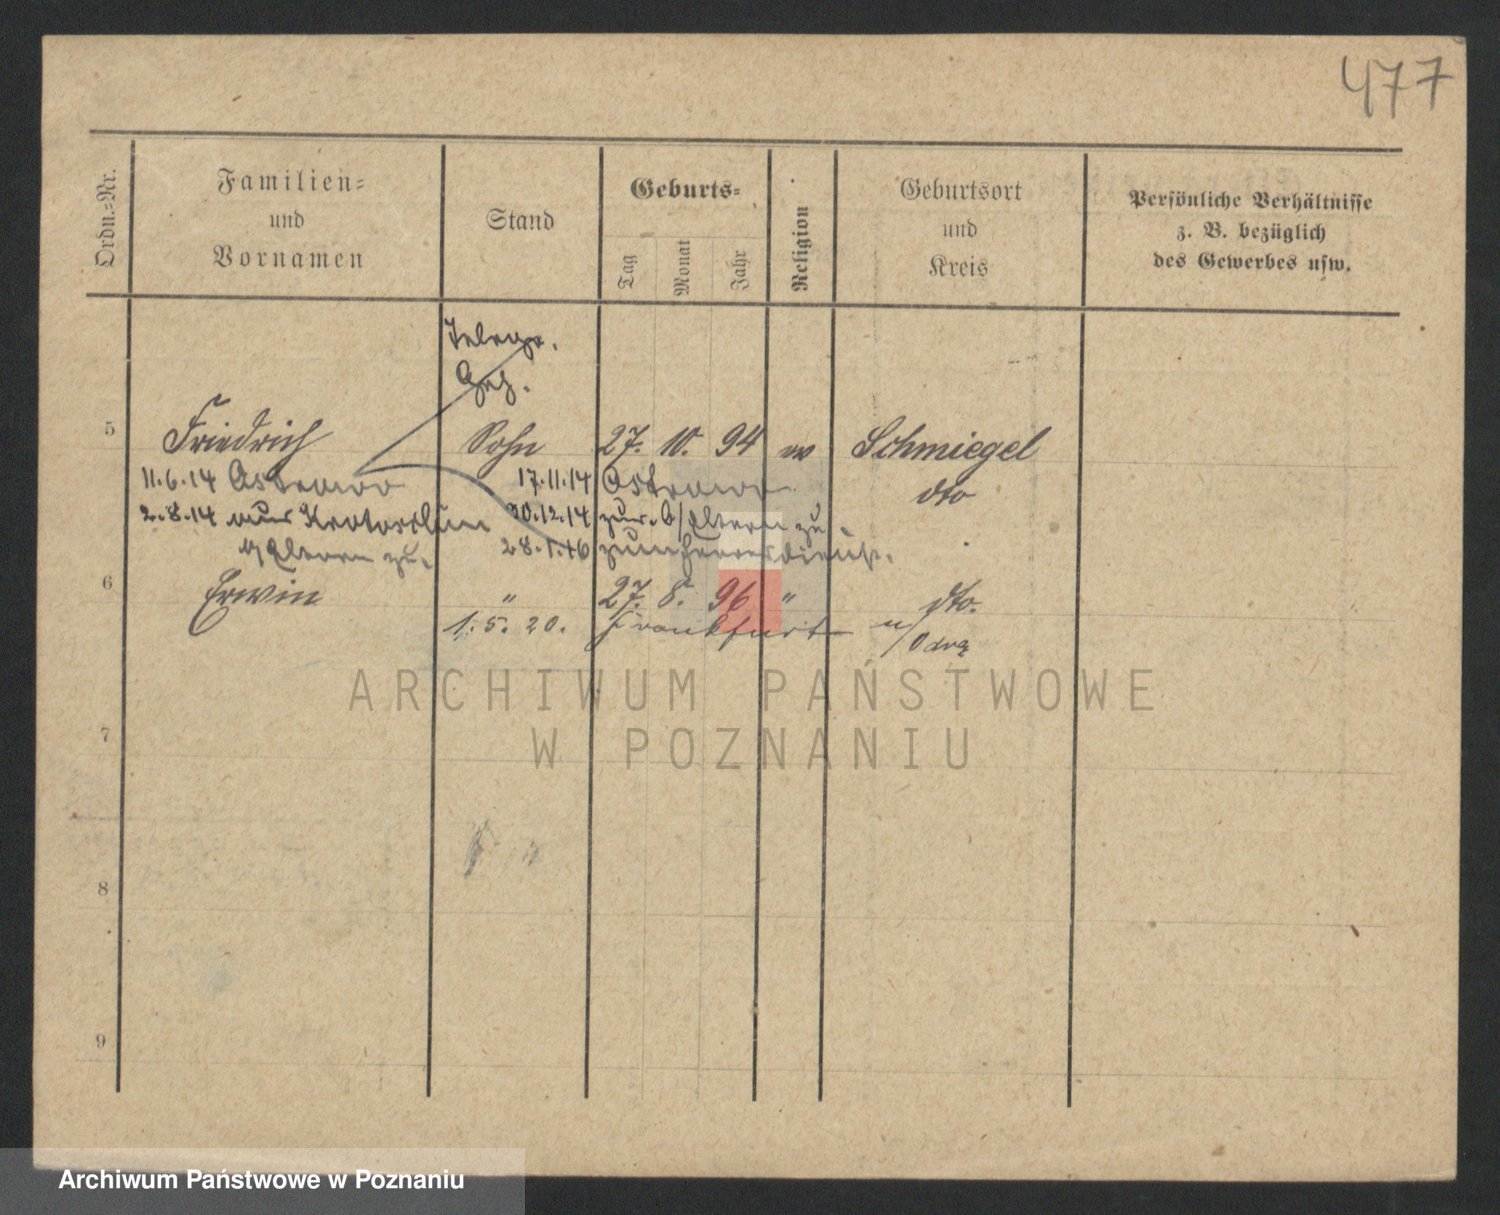 477
Ordn.-Nr.
Familien-
und
Vornamen
Stand
Geburts-
Tag
Monat
Jahr
Religion
Geburtsort
und
Kreis
Persönliche Verhältnisse
z. B. bezüglich
des Gewerbes usw.
Telegr.
5 Friedrich Sohn 27. 10. 94 Schmiegel
11.6.14 Ostrowo 17.11.14 Ostrowo dto
2.8.14 aus 30.12.14 zur. Eltern zu
Eltern zu. 28.1.16 zum Heeresdienst.
6 Erwin " 27. 8. 96 " dto.
1.5.20. Frankfurt
Oder
ARCHIWUM PAŃSTWOWE
W POZNANIU
7
8
9
Archiwum Państwowe w Poznaniu